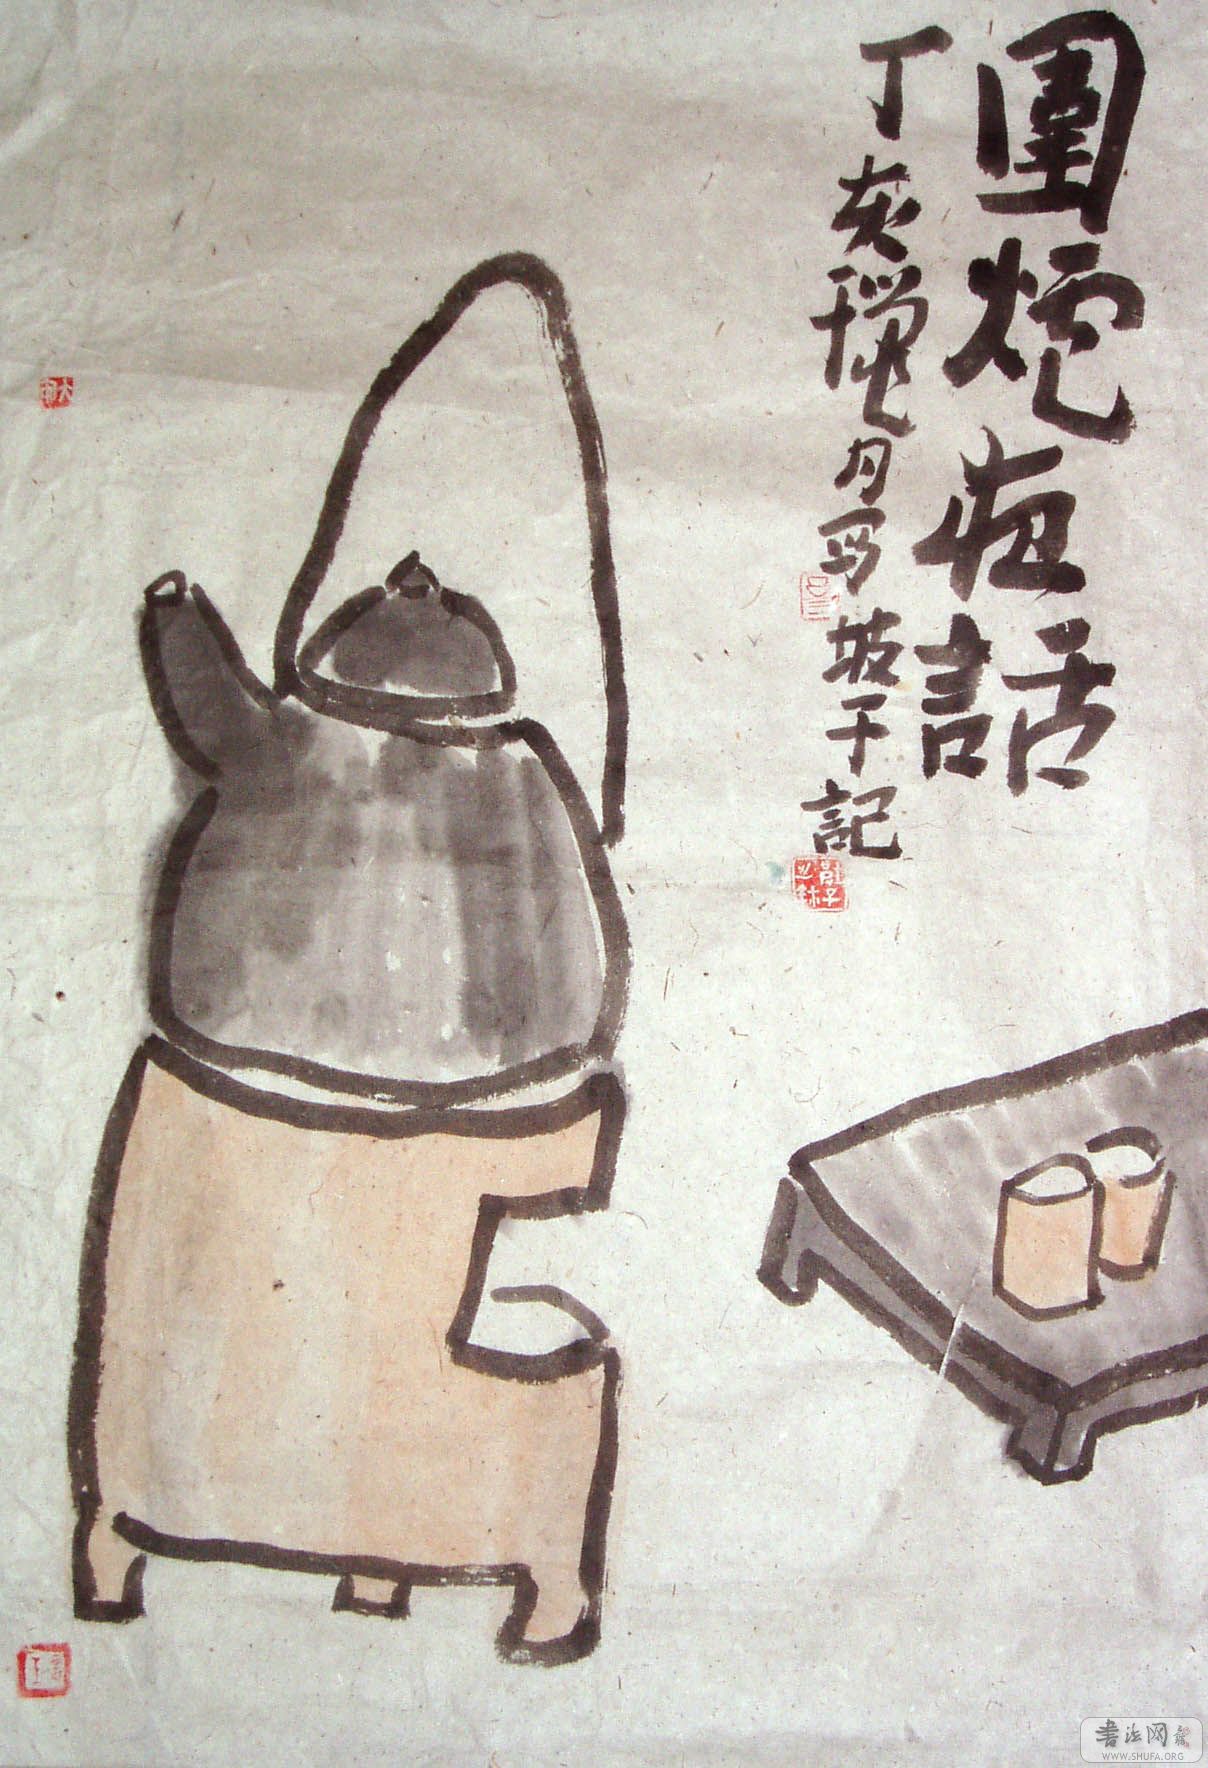 圍炉夜話
丁亥臘月写 坡子記
書法网
WWW.SHUFA.ORG